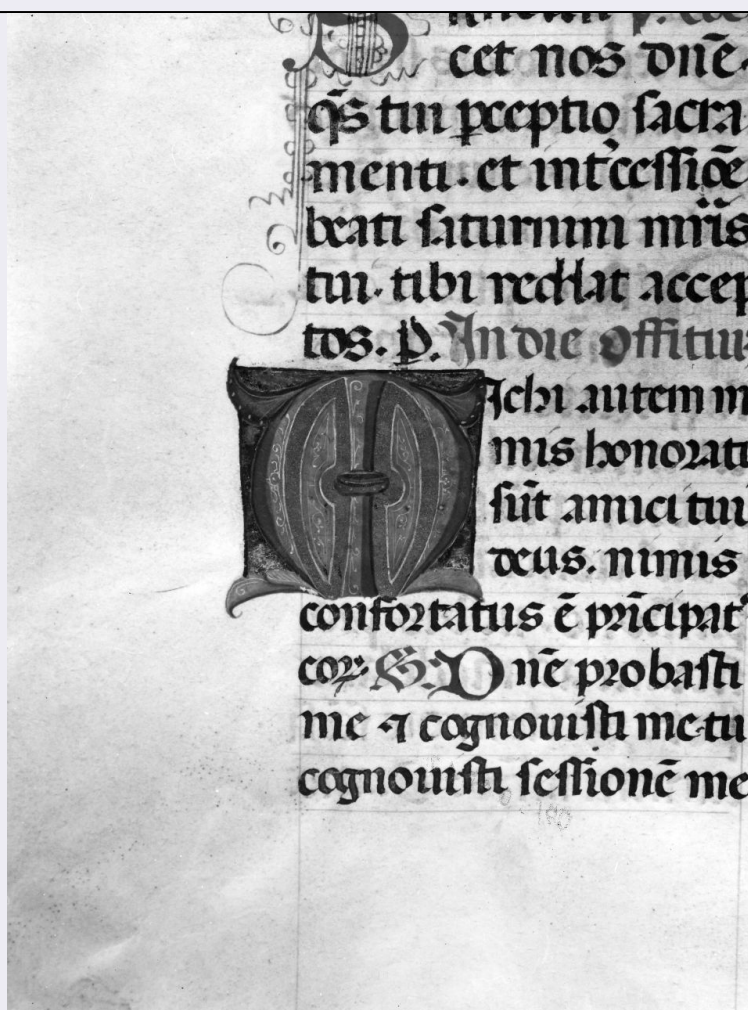 cet nos dnē
q̄s tui ꝑceptio sacra
menti. et intᷓcessiōe
beati saturnini mr̄is
tui. tibi reddat accep
tos. p. In die offitiū
Michi autem ni
mis honorati
sūt amici tui
deus. nimis
confortatus ē prīcipat᾿
eoꝝ. S. Dnē probasti
me ⁊ cognouisti me tu
cognouisti sessionē me